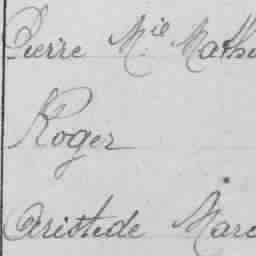 Pierre Mie Mathu
Roger
Aristide Marc